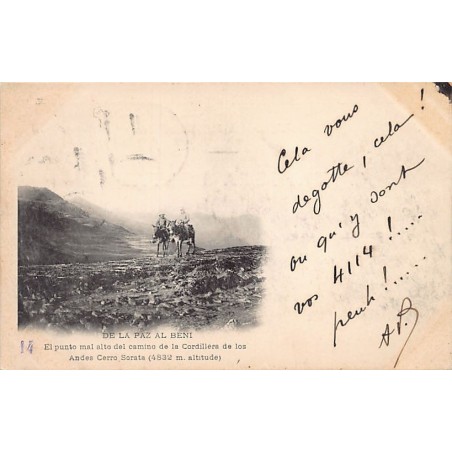 Cela vous
degotte, cela !
ou qu'y sont
vos 4114 !....
peuh !.....
AB
DE LA PAZ AL BENI
14
El punto mal alto del camino de la Cordillera de los
Andes Cerro Sorata (4832 m. altitude)